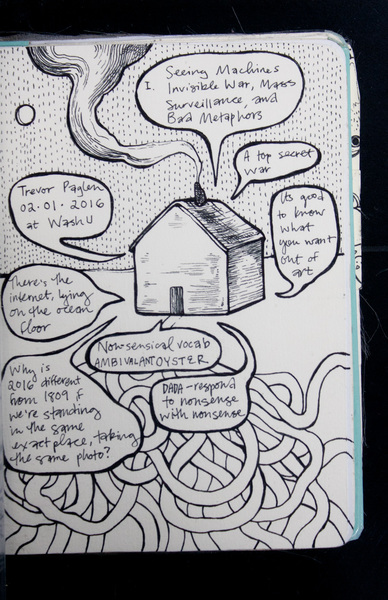 I. Seeing Machines
Invisible War, Mass
Surveillance, and
Bad Metaphors
A top secret
war
Trevor Paglen
02.01.2016
at WashU
Its good
to know
what
you want
out of
art
There's the
internet, lying
on the ocean
floor
Non-sensical vocab
AMBIVALANTOYSTER
DADA-respond
to nonsense
with nonsense
Why is
2016 different
from 1809 if
we're standing
in the same
exact place, taking
the same photo?